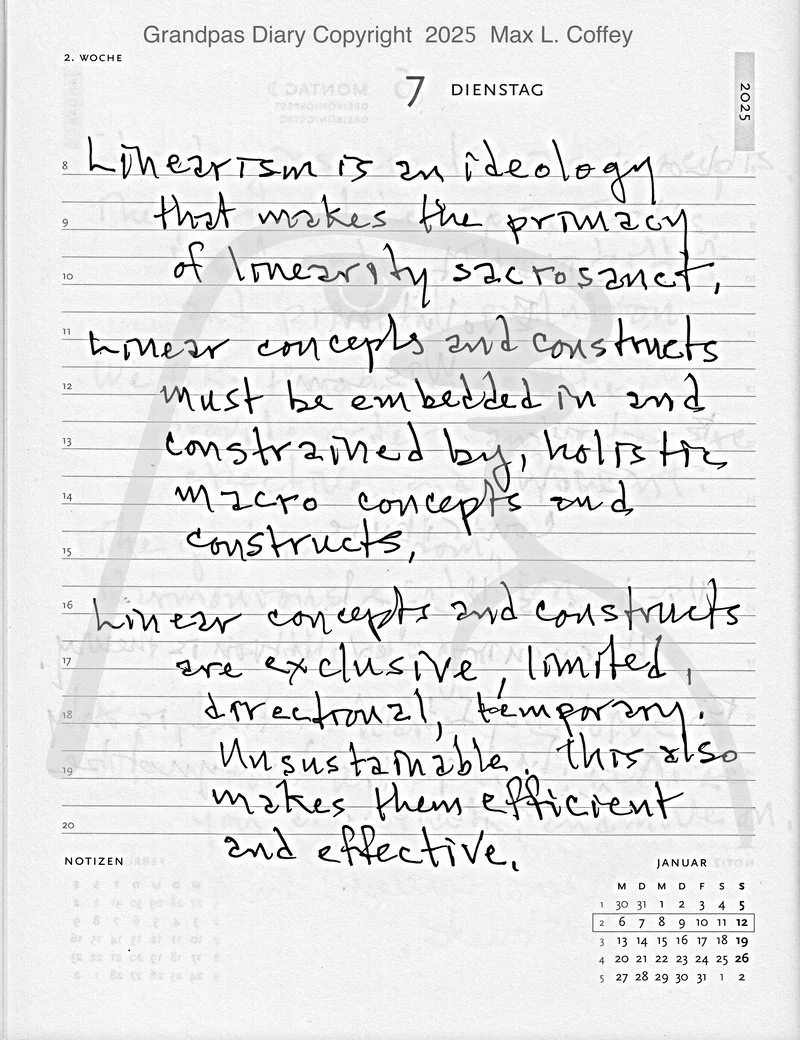 Grandpas Diary Copyright 2025 Max L. Coffey
2. WOCHE
7 DIENSTAG
2025
8 Linearism is an ideology
9 that makes the primacy
10 of linearity sacrosanct.
11 Linear concepts and constructs
12 must be embedded in and
13 constrained by, holistic
14 macro concepts and
15 constructs.
16 Linear concepts and constructs
17 are exclusive, limited,
18 directional, temporary.
19 Unsustainable. This also
makes them efficient
20 and effective.
NOTIZEN
JANUAR
M D M D F S S
1 30 31 1 2 3 4 5
2 6 7 8 9 10 11 12
3 13 14 15 16 17 18 19
4 20 21 22 23 24 25 26
5 27 28 29 30 31 1 2